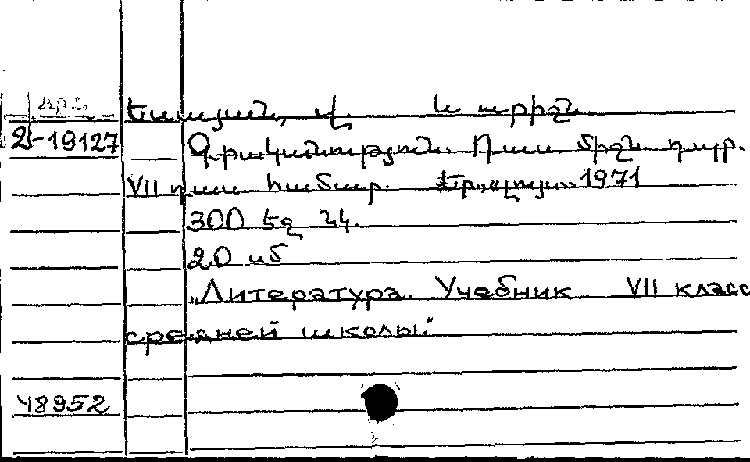 Եսայան, վ. և ուրիշն.
2-19127 Գրականություն. Դաս միջն. դպր.
VII դաս. համար. Եր., Լույս. 1971
300 եջ նկ.
20 սմ
„Литература. Учебник VII класс
средней школы"
48952